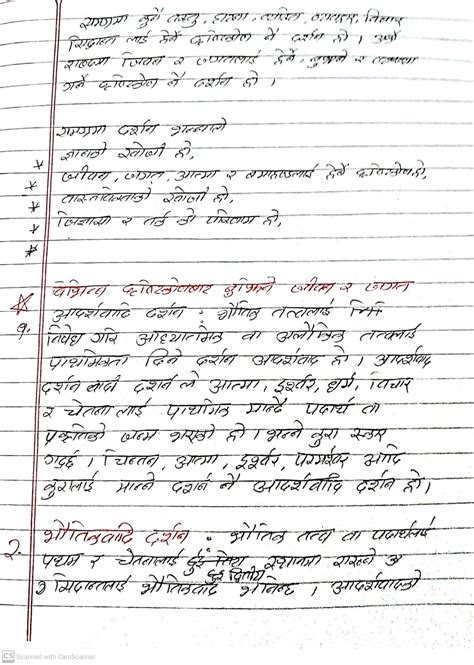 समग्रमा कुनै वस्तु, घटना, व्यक्ति, व्यवहार, विचार
सिद्धान्त लाई हेर्ने दृष्टिकोण नै दर्शन हो । अर्को
शब्दमा जिवन र जगतलाई हेर्ने, बुझ्ने र व्याख्या
गर्ने दृष्टिकोण नै दर्शन हो ।
समग्रमा दर्शन भन्नाले
* ज्ञानको खोजी हो,
* जीवन, जगत, आत्मा र ब्रमाण्डलाई हेर्ने दृष्टिकोण हो,
* वास्तविकताको खोजी हो,
* जिज्ञासा र तर्क को परिणाम हो,
*
विभिन्न दृष्टिकोणबाट बुझिने जीवन र जगत
१. आदर्शवादि दर्शन : भौतिक तत्वलाई
निषेध गरि आध्यात्मिक वा अलौकिक तत्वलाई
प्राथमिकता दिने दर्शन आदर्शवाद हो । आदर्शवाद
दर्शन बादी दर्शन ले आत्मा, इश्वर, धर्म, विचार
र चेतना लाई प्राथमिक मान्दै पदार्थ वा
प्रकृतिको जन्म भएको हो । भन्ने कुरा स्वीकार
गर्दछ । चिन्तन, आत्मा, इश्वर, परमेश्वर आदि
कुरालाई मान्ने दर्शन नै आदर्शवादि दर्शन हो ।
२. भौतिकवादि दर्शन : भौतिक तत्व वा पदार्थलाई
प्रथम र चेतनालाई स्थानमा राख्ने
द्वितीय
सिद्धान्तलाई भौतिकवाद भनिन्छ । आदर्शवादको
CS Scanned with CamScanner